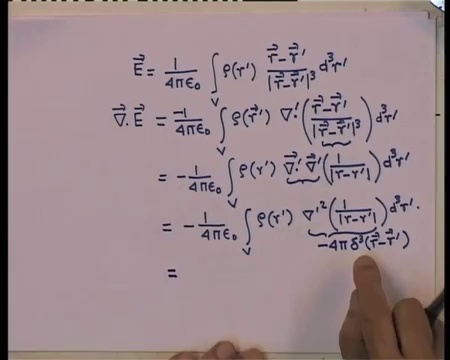 E⃗ = 1/4πϵ₀ ∫_V ρ(r') (r⃗-r⃗')/|r⃗-r⃗'|³ d³r'
∇⃗.E⃗ = -1/4πϵ₀ ∫_V ρ(r⃗') ∇'.((r⃗-r⃗')/|r⃗-r⃗'|³) d³r'
= -1/4πϵ₀ ∫_V ρ(r') ∇⃗'.∇⃗'(1/|r-r'|) d³r'
= -1/4πϵ₀ ∫_V ρ(r') ∇'²(1/|r-r'|) d³r'.
-4πδ³(r⃗-r⃗')
=